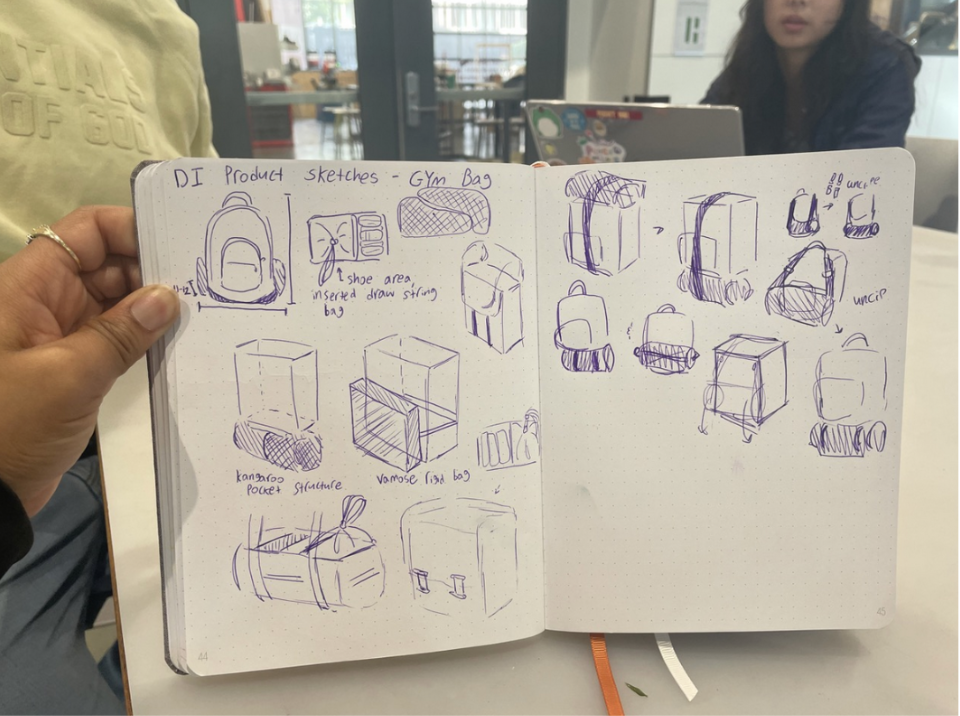 NTIALS
OF GOD
DI Product sketches - Gym Bag
shoe area,
inserted draw string
bag
kangaroo
pocket structure
vamose rigd bag
unczip
44
45